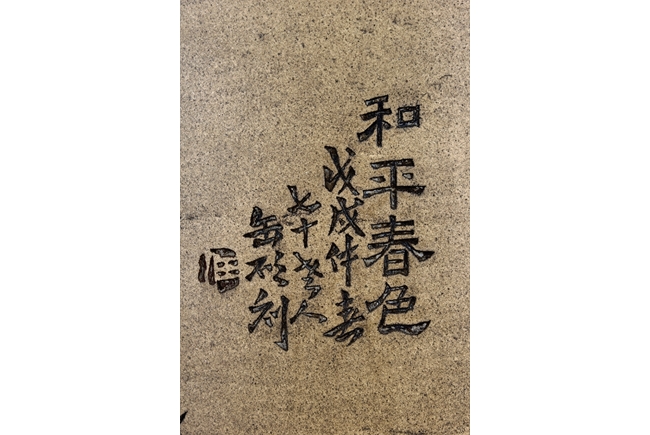 和平春色
戊戌仲春
七十老人
缶硁刻